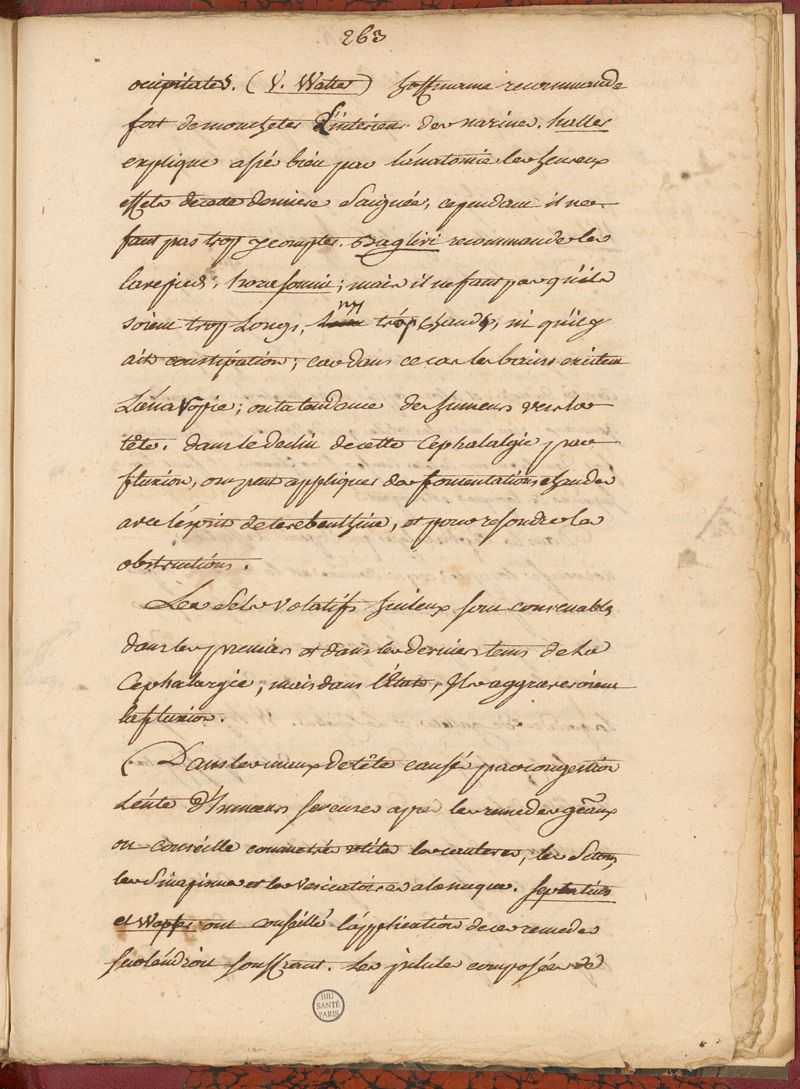 263
occipitales. (V. Walle) hoffmann recommande
fort de moucheter L'intérieur des narines. haller
explique assé bien par l'anatomie les heureux
effets de cette dernière Saignée, cependant il ne
faut pas trop y compter. Baglivi recommande les
lavepieds, ; mais il ne faut pas qu'ils
soient trop Longs, ny trop chauds, ni qu'il y
ait constipation; car dans ce cas les bains excitent
L'énaVopie; ou la tendance des humeurs vers la
tête. dans le declin de cette Cephalalgie par
fluxion, on peut appliquer des fomentations chaudes
avec l'ésprit de terebenthine, et pour resoudre les
obstructions.
Les Sels Volatifs huileux sont convenables
dans les premiers et dans les derniers tems de La
Cephalargie, mais dans l'état, Ils aggraveroient
la fluxion.
Dans les maux de tête causé par congestion
Lente D'humeurs sereuses aprè les remedes gñaux
on conseille comme très utile les cauteres, les Setons,
les Sinapismes et les Vesicatoires a la nuque. Septalius
et Wepfer ont conséillé l'application de ces remedes
sur l'éndroit souffrant. Les pilules composées de
BIU
SANTÉ
PARIS